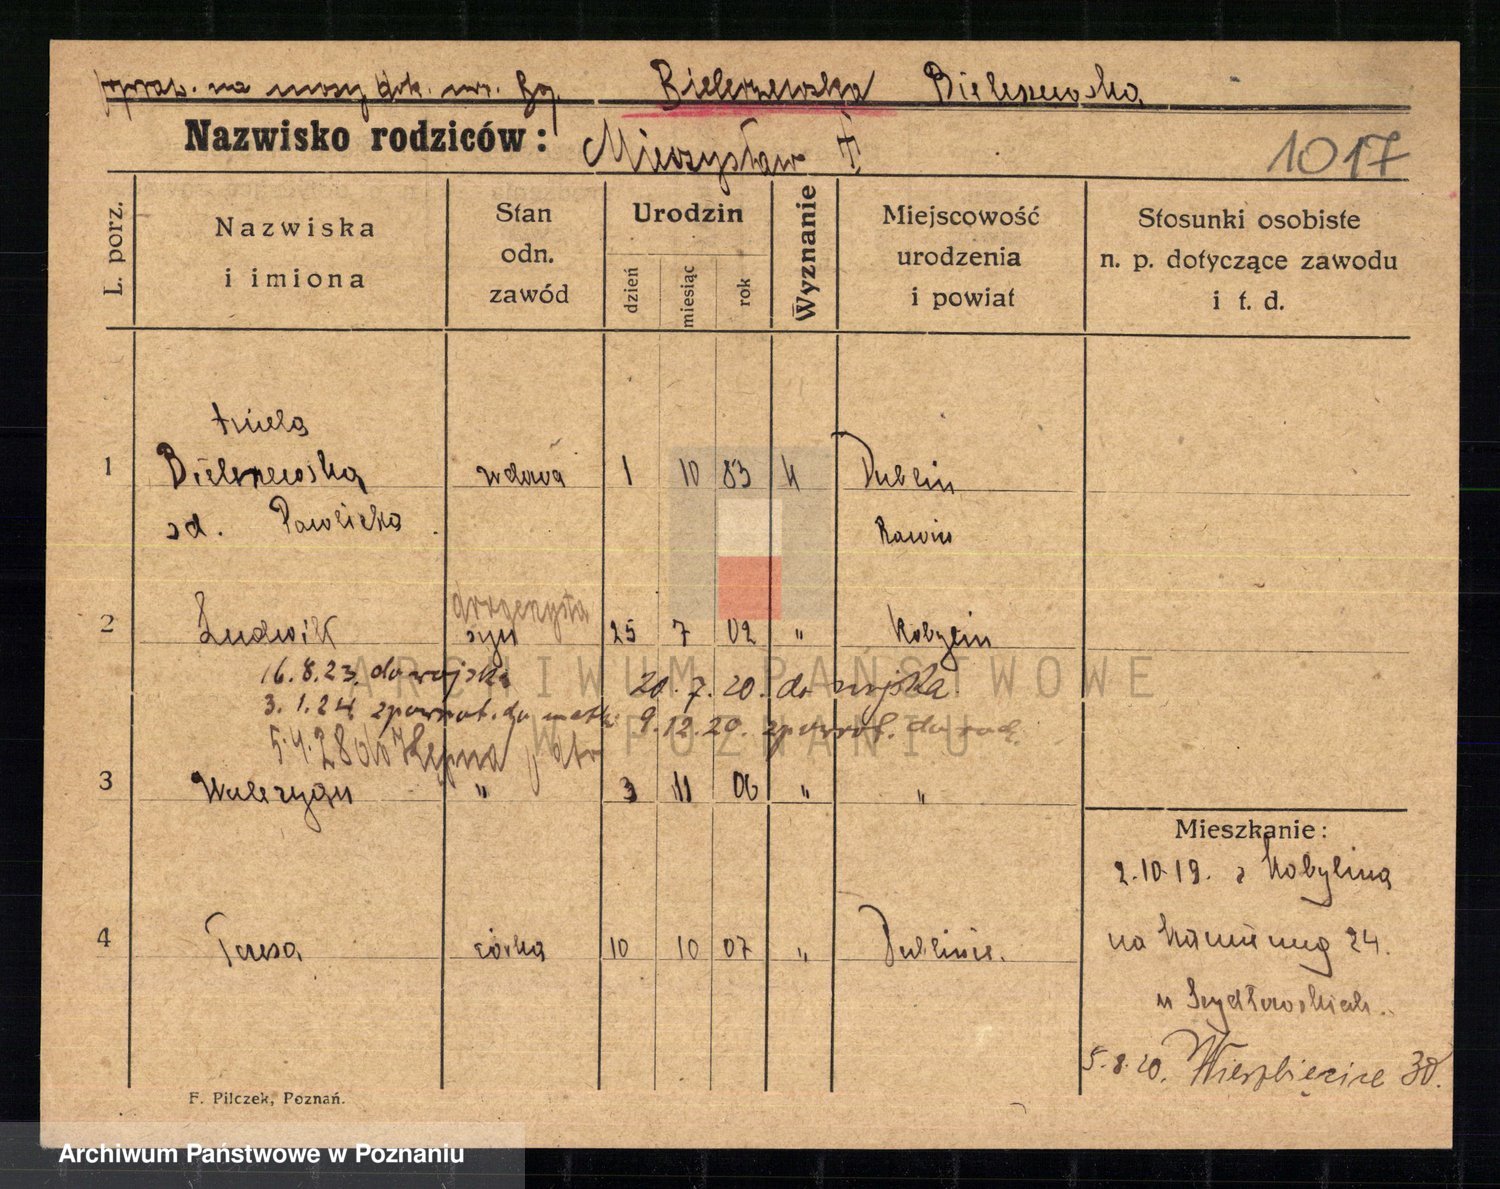 popraw. na mocy dok. Bielerzewska Bielerzewska
Nazwisko rodziców: Mieczysław
1017
L. porz.
Nazwiska i imiona
Stan odn. zawód
Urodzin
dzień miesiąc rok
Wyznanie
Miejscowość urodzenia i powiat
Stosunki osobiste n. p. dotyczące zawodu i t. d.
Aniela
1 Bielerzewska wdowa 1 10 83 k Dublin
od. Pawlicka Rawicz
drogerzysta
2 Ludwik syn 25 7 02 " Kobylin
16.8.23. do wojska 20.7.20. do wojska
3.1.24 zpowrot. do matki 9.12.20. zpowrot. do rodz.
5.4.28 do Kępna
3 Waleryan " 3 11 06 " "
Mieszkanie:
2.10.19. z Kobylina
4 Teresa córka 10 10 07 " Dublinie.
na 24.
u Szydłowskich.
5.8.20. Wierzbięcice 30.
F. Pilczek, Poznań.
ARCHIWUM PAŃSTWOWE
W POZNANIU
Archiwum Państwowe w Poznaniu